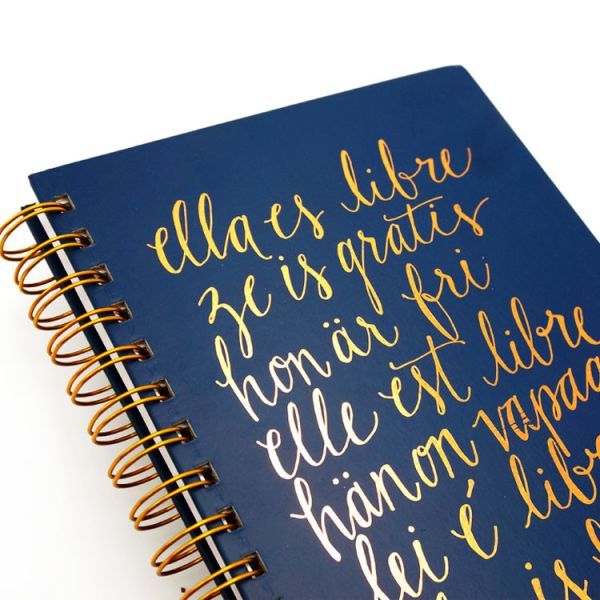 ella es libre
ze is gratis
hon är fri
elle est libre
hän on vapaa
lei é